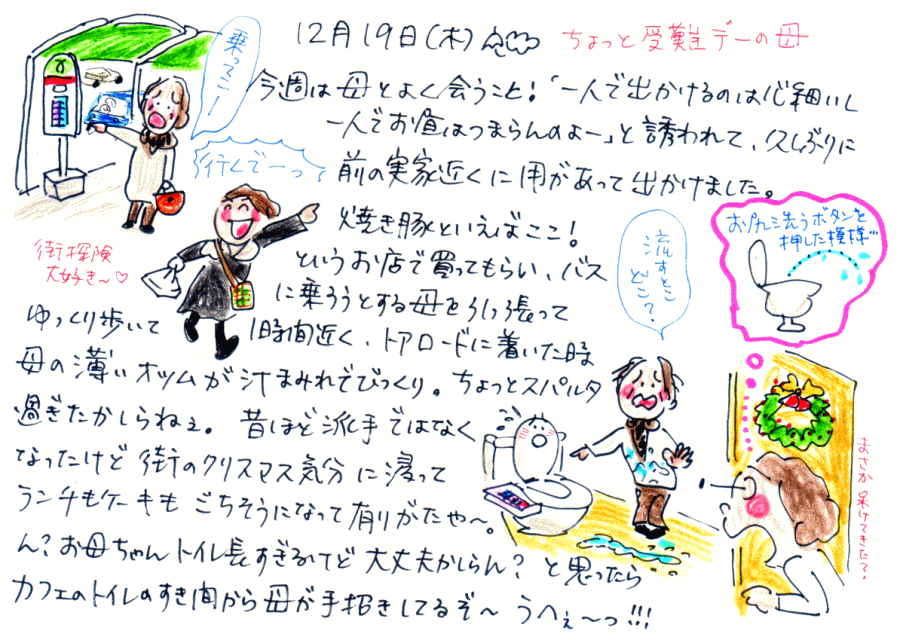 12月19日(木)
ちょっと受難デーの母
今週は母とよく会うこと!「一人で出かけるのは心細いし
一人でお昼はつまらんのよー」と誘われて、久しぶりに
前の実家近くに用があって出かけました。
乗ってこー!
行くでーって
街探険
大好き〜♡
焼き豚といえばここ!
というお店で買ってもらい、バス
に乗ろうとする母を引っ張って
ゆっくり歩いて 1時間近く、トアロードに着いた時
母の薄いオツムが汁まみれでびっくり。ちょっとスパルタ
過ぎたかしらねぇ。昔ほど派手ではなく
なったけど街のクリスマス気分に浸って
ランチもケーキもごちそうになって有りがたや〜。
ん?お母ちゃんトイレ長すぎるけど大丈夫かしらん?と思ったら
カフェのトイレのすき間から母が手招きしてるぞ〜うへぇ〜っ!!!
流すとこ
どこ?
お尻洗うボタンを
押した模様…
まさか呆けてきた?